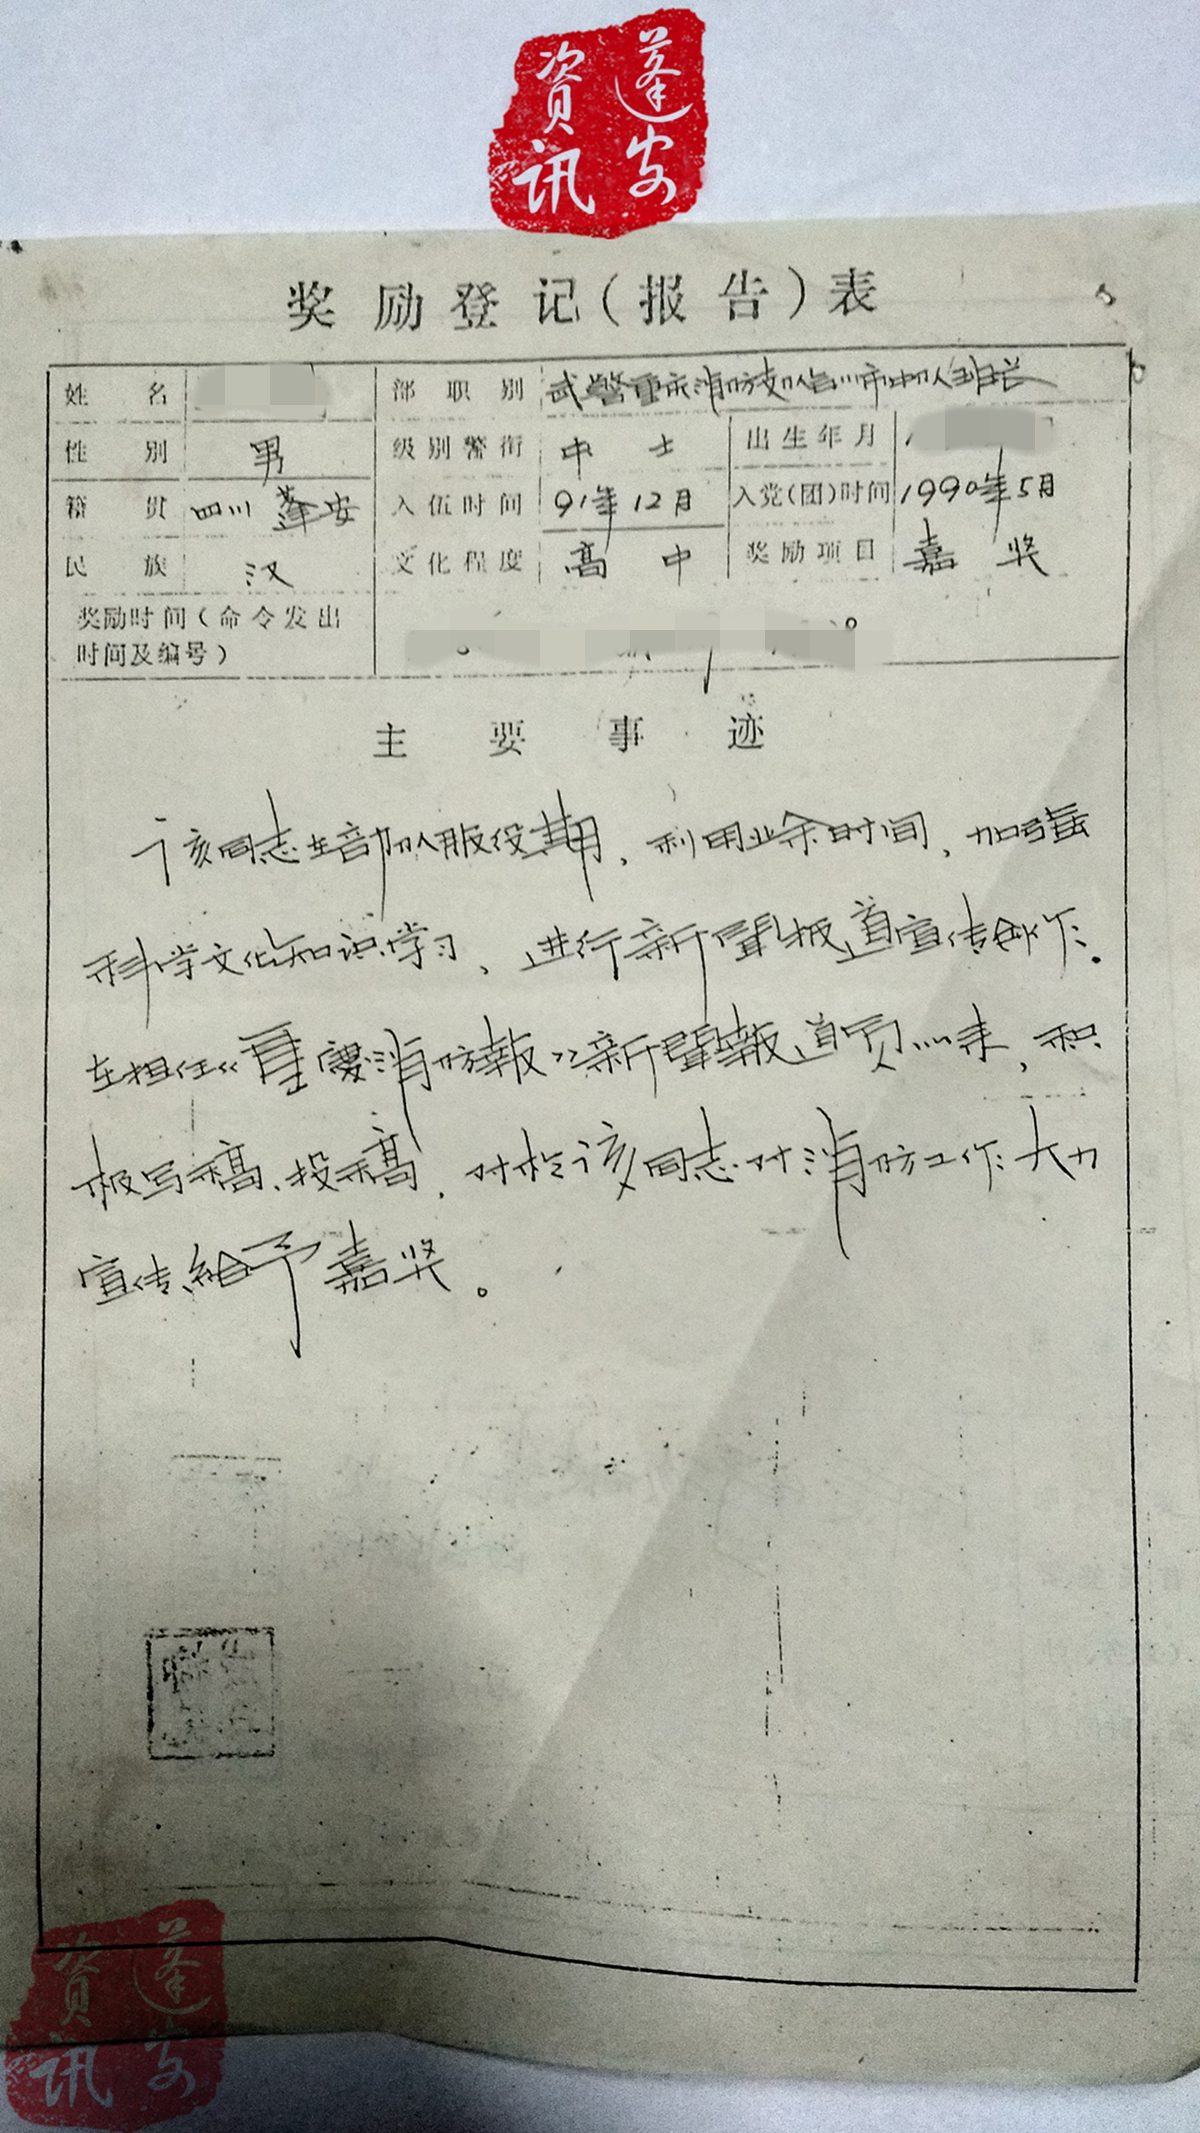 蓬安资讯
奖励登记（报告）表
姓名 部职别 武警重庆消防支队合川市中队班长
性别 男 级别警衔 中士 出生年月
籍贯 四川蓬安 入伍时间 91年12月 入党(团)时间 1990年5月
民族 汉 文化程度 高中 奖励项目 嘉奖
奖励时间（命令发出
时间及编号）
主要事迹
该同志在部队服役期，利用业余时间，加强
科学文化知识学习，进行新聞报道宣传创作。
在担任《重慶消防報》新聞報道员以来，积
极写稿、投稿，对于该同志对消防工作大力
宣传給予嘉奖。
蓬安资讯